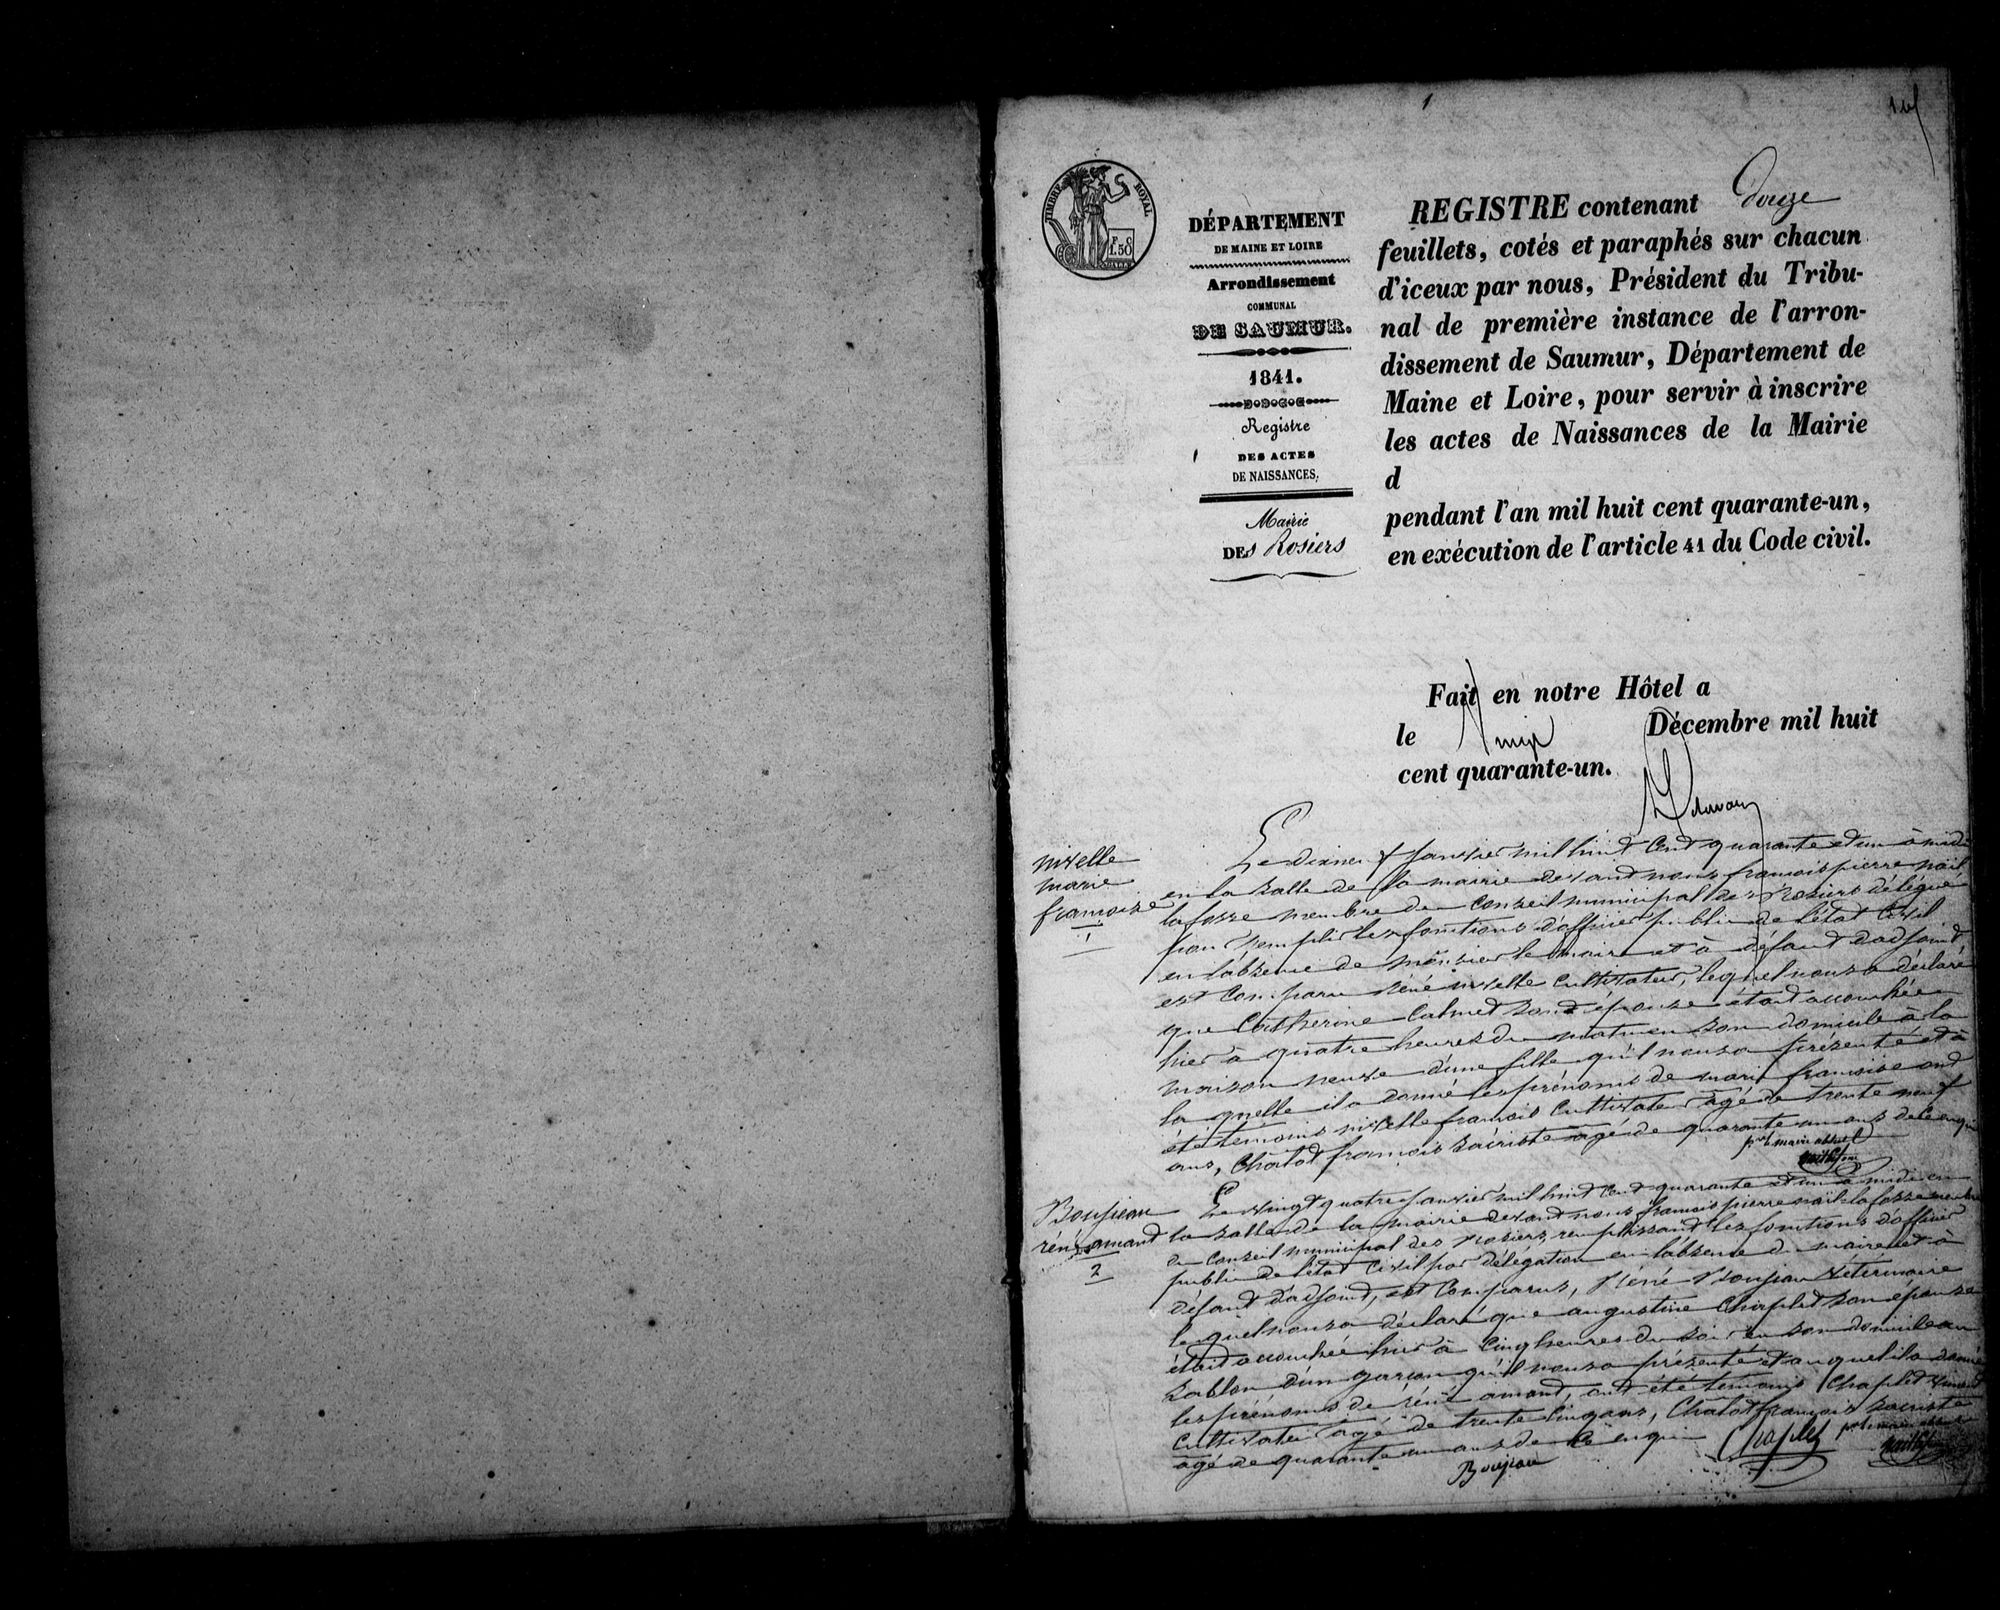 1
TIMBRE ROYAL
F. C
1.50
DÉPARTEMENT
DE MAINE ET LOIRE
Arrondissement
COMMUNAL
DE SAUMUR.
1841.
Registre
DES ACTES
DE NAISSANCES.
Mairie
DEs Rosiers
REGISTRE contenant Douze
feuillets, cotés et paraphés sur chacun
d'iceux par nous, Président du Tribu-
nal de première instance de l'arron-
dissement de Saumur, Département de
Maine et Loire, pour servir à inscrire
les actes de Naissances de la Mairie
d
pendant l'an mil huit cent quarante-un,
en exécution de l'article 41 du Code civil.
Fait en notre Hôtel a
le Décembre mil huit
cent quarante-un.
nivelle
marie
francoise
1
Le dixneuf Janvier mil huit Cent quarante et un à midi
en la salle de la mairie devant nous françois pierre nail
lafosse membre du Conseil municipal des Rosiers délégué
pour remplir les fonctions d'officier public de l'état Civil
en l'absence de monsieur le maire et à défaut d'adjoint
est Comparu Réné nivelle Cultivateur, lequel nous a déclaré
que Catherine Calmet son épouse était accouchée
hier à quatre heures du matin en son domicile à la
maison neuve d'une fille qu'il nous a présenté et à
la quelle il a donné les prénoms de marie francoise ont
été témoins nivelle françois Cultivateur agé de trente neuf
ans, Chalot françois sacriste agé de quarante un ans de ce enquis
pr le maire absent
Boujeau
réné amant
2
Le vingt quatre Janvier mil huit Cent quarante et un à midi en
la salle de la mairie devant nous françois pierre nail lafosse membre
du Conseil municipal des Rosiers, remplissant les fonctions d'officier
public de l'état Civil par délégation en l'absence du maire et à
défaut d'adjoint, est Comparus, Réné Boujeau Vétérinaire
lequel nous a déclaré que augustine Chaplet son épouse
était accouchée hier à Cinq heures du soir en son domicile au
sablon, d'un garçon qu'il nous a présenté et auquel il a donné
les prénoms de réné amant, ont été témoins Chaplet
Cultivateur agé de trente Cinq ans, Chalot françois sacriste
agé de quarante un ans de ce enquis
Boujeau
Chaplet
pr le maire absent